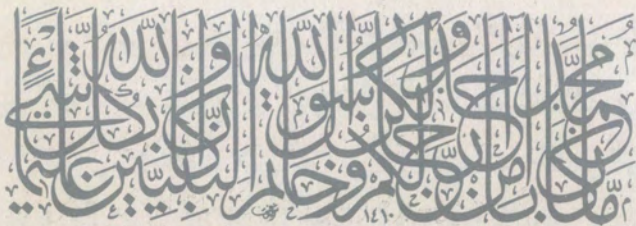 مَّا كَانَ مُحَمَّدٌ أَبَا أَحَدٍ مِّن رِّجَالِكُمْ وَلَٰكِن رَّسُولَ اللَّهِ وَخَاتَمَ النَّبِيِّينَ وَكَانَ اللَّهُ بِكُلِّ شَيْءٍ عَلِيمًا
١٤١٠